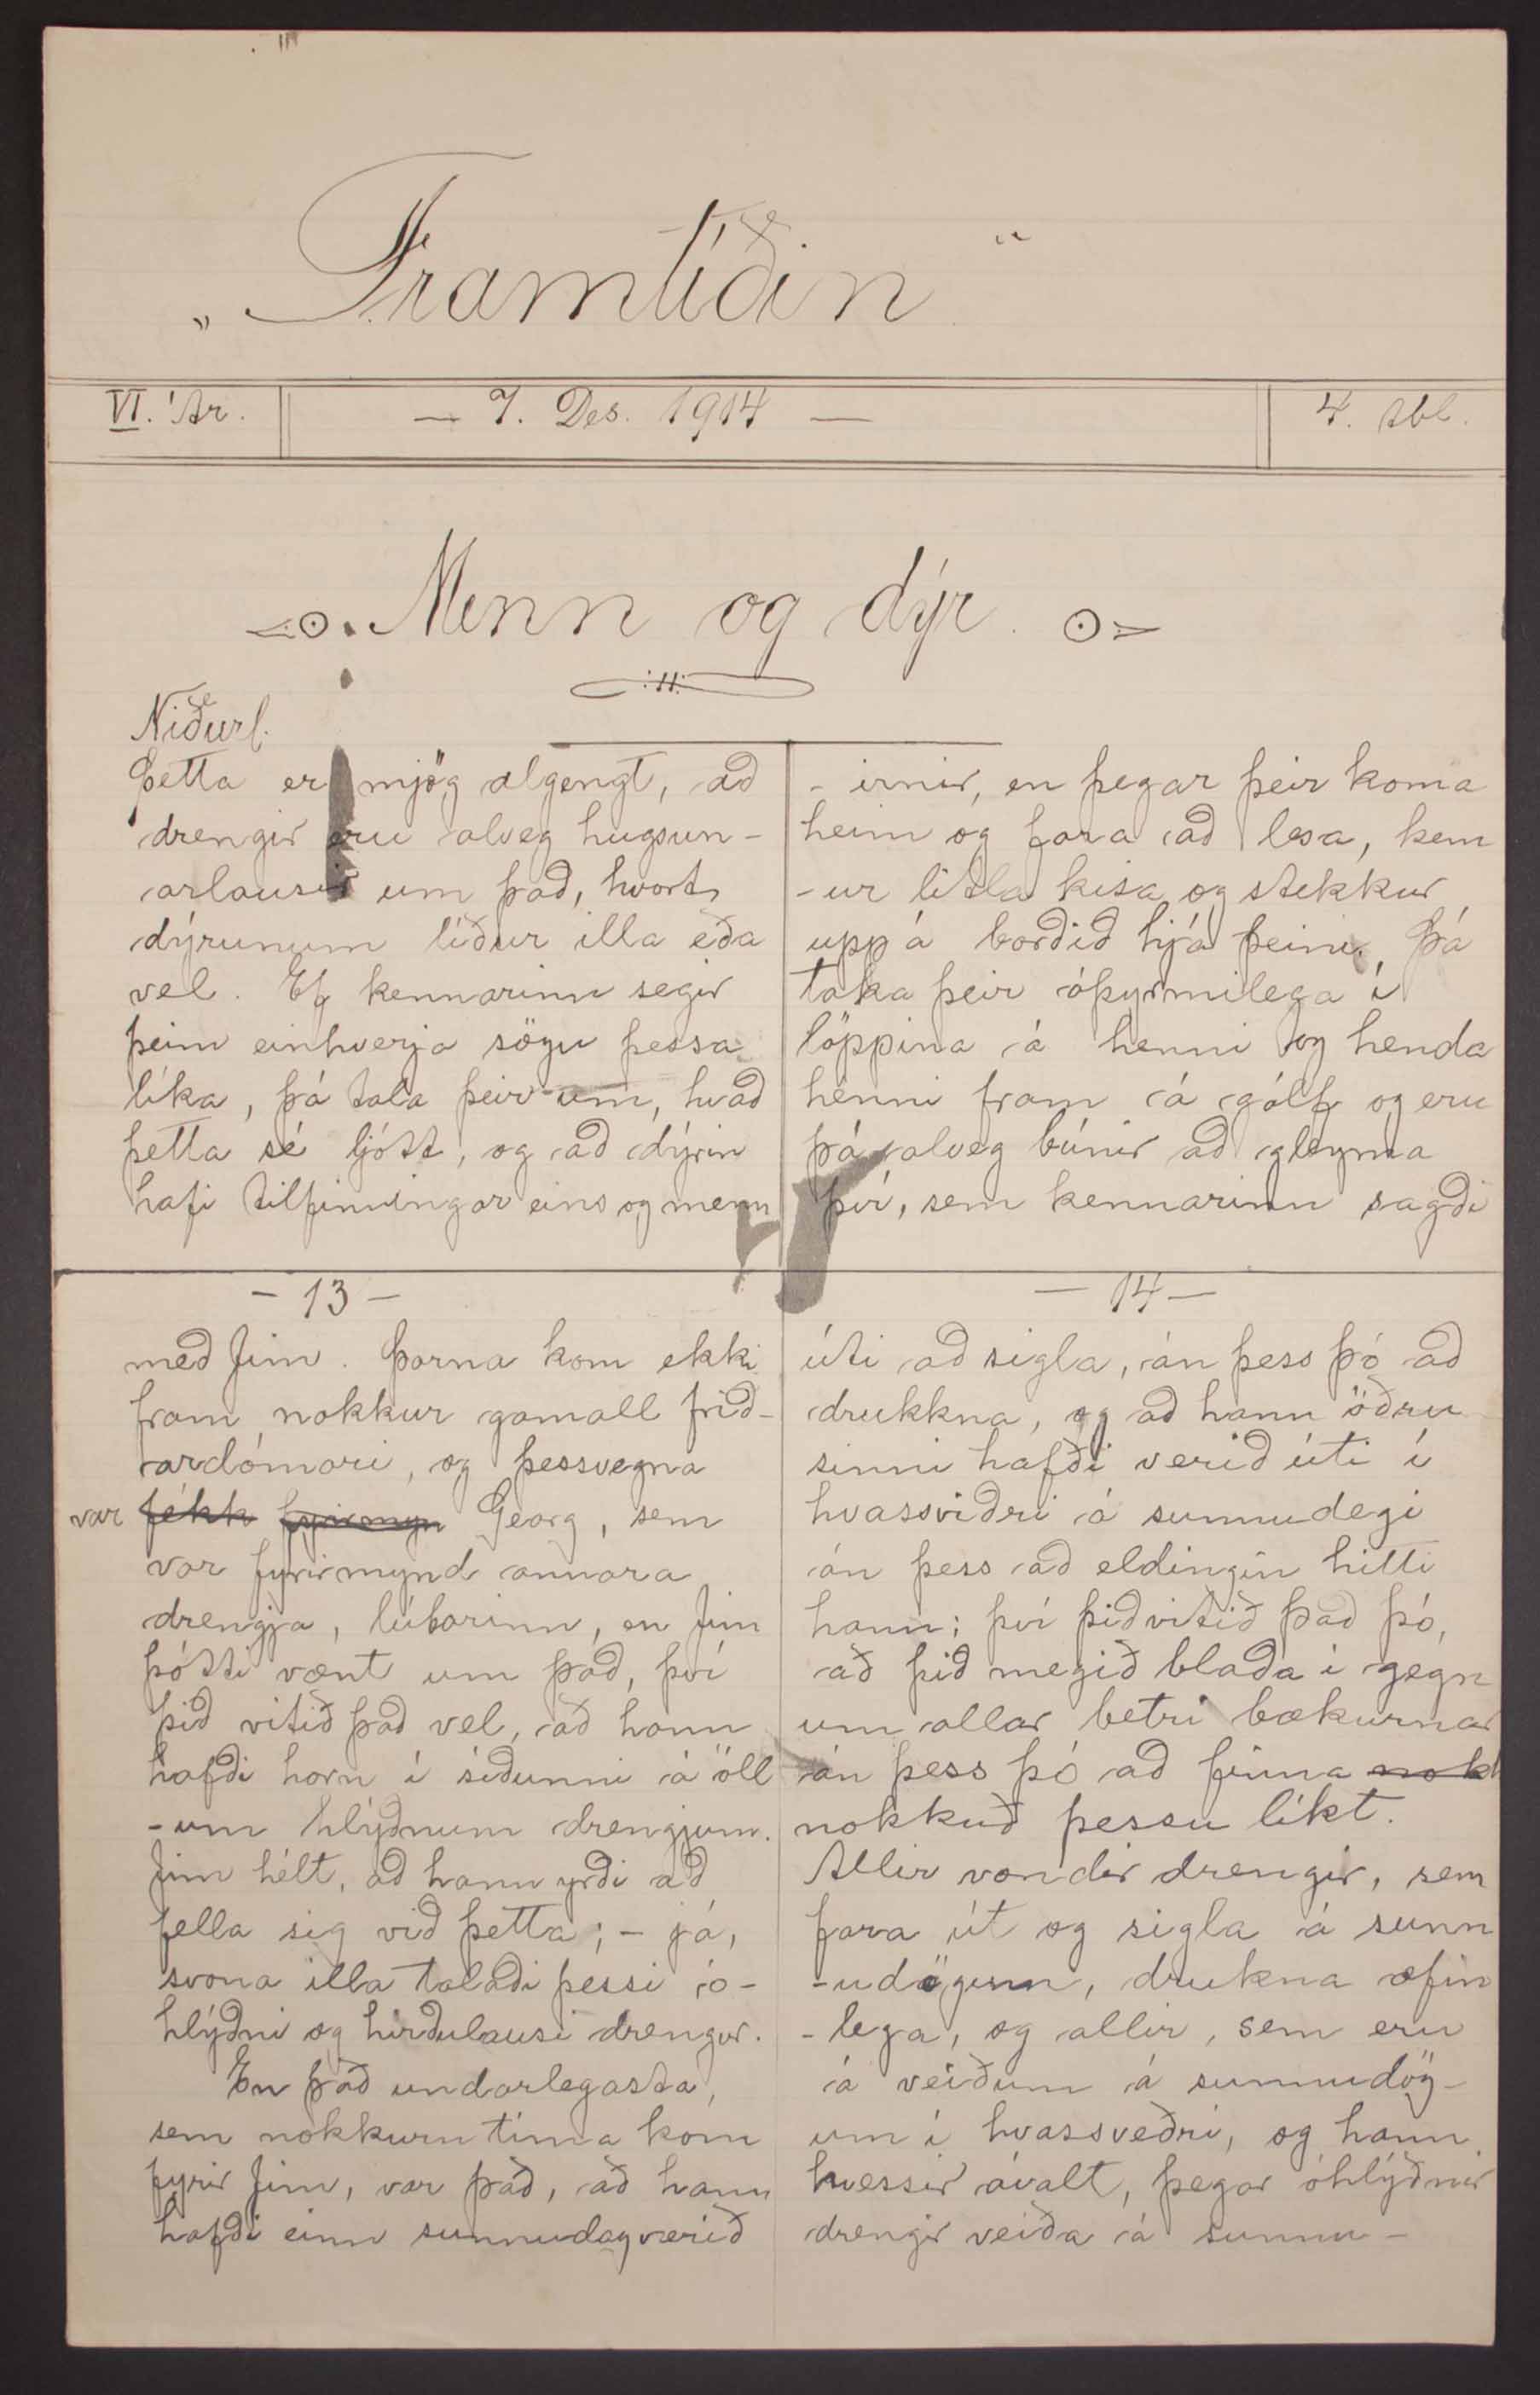 „Framtíðin“
VI. Ár.
— 7. Des. 1914 —
4. tbl.
Menn og dýr.
Niðurl.
Þetta er mjög algengt, að
drengir eru alveg hugsun-
arlausir um það, hvort
dýrunum líður illa eða
vel. Ef kennarinn segir
þeim einhverja sögu þessa
líka, þá tala þeir um, hvað
þetta sé ljótt, og að dýrin
hafi tilfinningar eins og menn
- irnir, en þegar þeir koma
heim og fara að lesa, kem
-ur litla kisa og stekkur
upp á borðið hjá þeim. Þá
taka þeir óþyrmilega í
löppina á henni og henda
henni fram á gólf og eru
þá alveg búnir að gleyma
því, sem kennarinn sagði
- 13 -
með Jim. Þarna kom ekki
fram nokkur gamall frið-
ardómari, og þessvegna
var fékk fyrirmyn Georg, sem
var fyrirmynd annara
drengja, lúbarinn, en Jim
þótti vænt um það, því
þið vitið það vel, að hann
hafði horn í síðunni á öll
-um hlýðnum drengjum.
Jim hélt, að hann yrði að
fella sig við þetta; - já,
svona illa talaði þessi ó-
hlýðni og hirðulausi drengur.
En það undarlegasta,
sem nokkurn tíma kom
fyrir Jim, var það, að hann
hafði einn sunnudag verið
- 14 -
úti að sigla, án þess þó að
drukkna, og að hann öðru
sinni hafði verið úti í
hvassviðri á sunnudegi
án þess að eldingin hitti
hann; því þið vitið það þó,
að þið megið blaða í gegn
um allar betri bækurnar
án þess þó að finna nokk
nokkuð þessu líkt.
Allir vondir drengir, sem
fara út og sigla á sunn
-udögum, drukna æfin
-lega, og allir, sem eru
á veiðum á sunnudög-
um í hvassveðri, og hann
hvessir ávalt, þegar óhlýðnir
drengir veiða á sunnu-